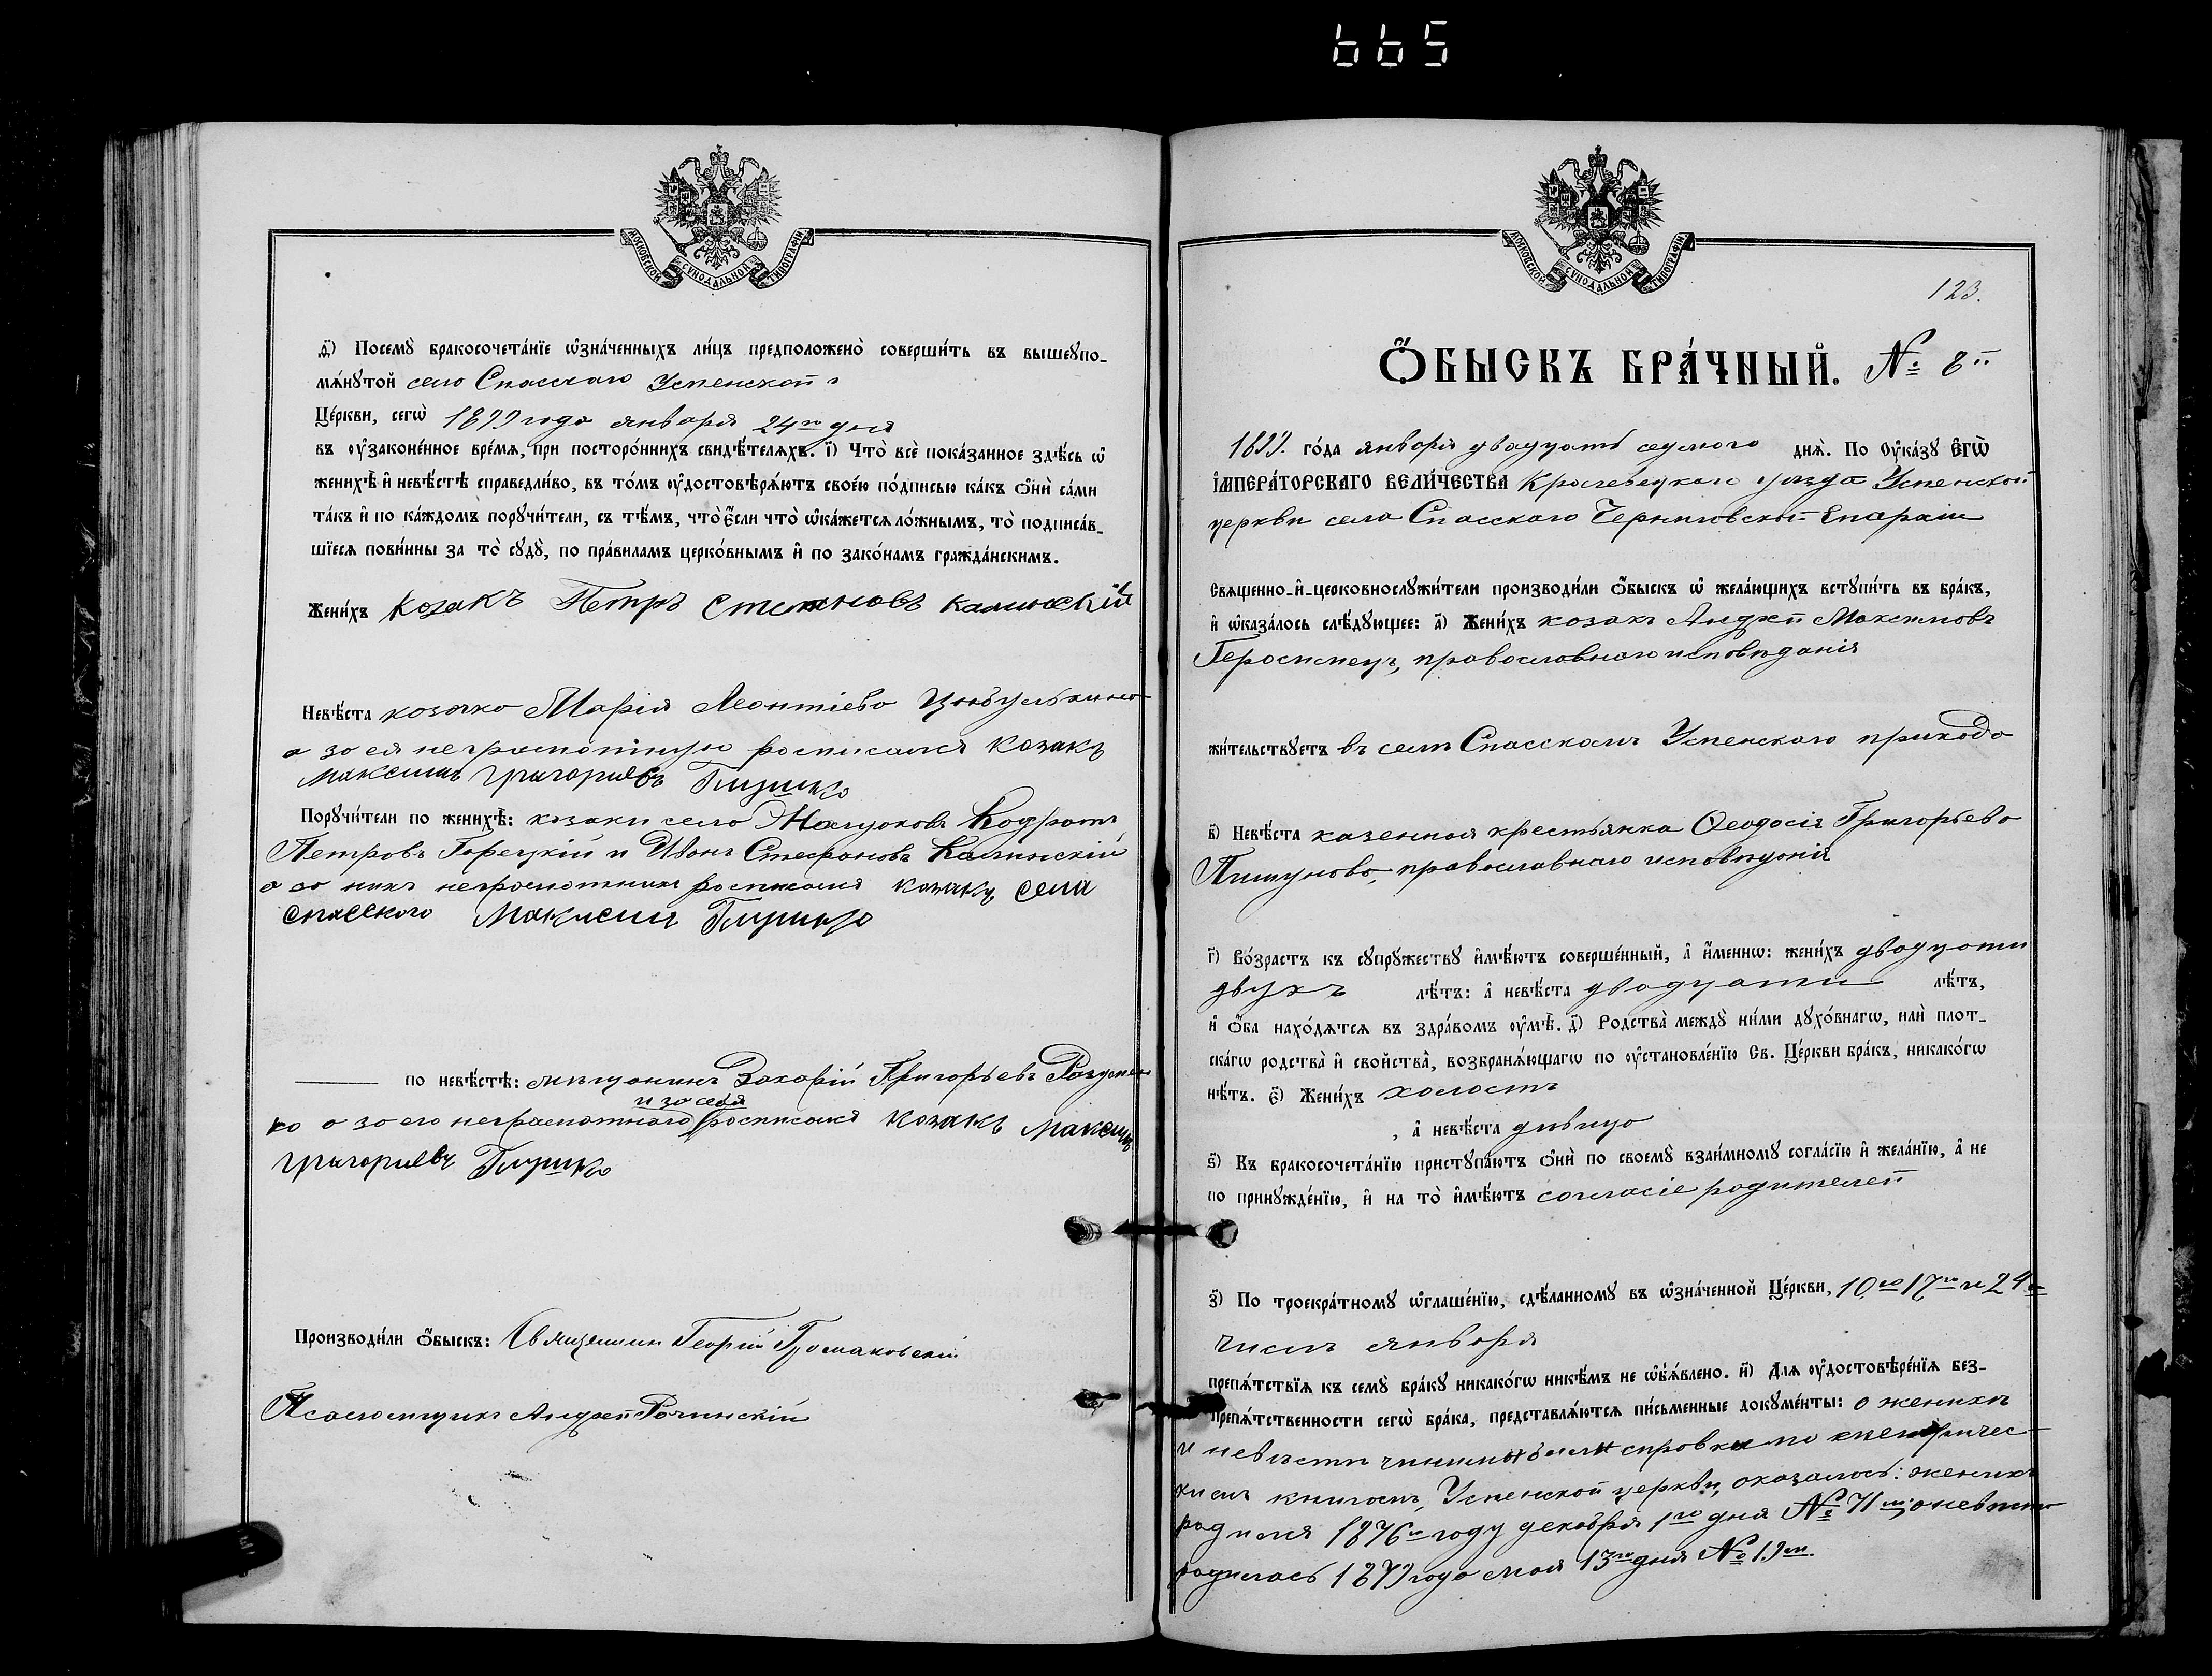 665
МОСКОВСКОЙ СУНОДАЛЬНОЙ ТИПОГРАФІИ
д҃) Посемꙋ̀ бракосочета́нїе ѡ҆зна́ченныхъ ли́цъ предположено̀ соверши́ть въ вышеꙋпо-
мѧ́нꙋтой село Спасского Успенской
Це́ркви, сегѡ̀ 1899 года января 24го дня
въ ᲂу҆законе́нное вре́мѧ, при посторо́ннихъ свидѣ́телѧхъ. і҃) Что̀ всѐ пока́занное здѣ́сь ѡ҆
женихѣ̀ и҆ невѣ́стѣ справедли́во, въ то́мъ ᲂу҆достовѣрѧ́ютъ свое́ю по́дписью ка́къ ѻ҆нѝ са́ми
та́къ и҆ по ка́ждомъ порꙋчи́тели, съ тѣ́мъ, что̀ є҆́сли что̀ ѡ҆ка́жетсѧ ло́жнымъ, то̀ подписа́в-
шїесѧ пови́нны за то̀ сꙋдꙋ̀, по пра́виламъ церко́внымъ и҆ по зако́намъ гражда́нскимъ.
Жени́хъ Козакъ Петръ Стеѳановъ Калинскій
Невѣ́ста козачка Марія Леонтіева Цыбулькина
а за ея неграмотную росписался Козакъ
Максимъ Григориевъ Глушко
Порꙋчи́тели по женихѣ̀: козаки села Кодратъ
Петровъ Горецкій и Иванъ Стефановъ Калинскій
а за нихъ неграмотныхъ росписался козакъ села
Спасского Максимъ Глушко
по невѣ́стѣ: мѣщанинъ Захарій Григорьевъ Разумен
и за себя
ко а за его неграмотного росписался Козакъ Максимъ
Григориевъ Глушко
Производи́ли ѻ҆́быскъ: Священник Георгій
Псаломщикъ Андрей Рачинскій
МОСКОВСКОЙ СУНОДАЛЬНОЙ ТИПОГРАФІИ
123.
Ѻ҆́БЫСКЪ БРА́ЧНЫЙ. № 8й
1899. го́да января двадцать седмого днѧ̀. По ᲂу҆ка́зꙋ є҆гѡ̀
і҆мпера́торскаго вели́чества Кролевецкаго уезда Успенской
церкви села Спасского Черниговской Епархіи
Свѧщенно-и҆-церковнослꙋжи́тели производи́ли ѻ҆́быскъ ѡ҆ жела́ющихъ встꙋпи́ть въ бра́къ,
и҆ ѡ҆каза́лось слѣ́дꙋющее: а҃) Жени́хъ козакъ Андрей Максимовъ
Герасимецъ, православнаго исповѣданія
жи́тельствꙋетъ въ селѣ Спасскомъ Успенскаго прихода
в҃) Невѣ́ста казенная крестьянка Ѳеодосія Григорьева
православнаго исповѣданія
г҃) Во́зрастъ къ сꙋпрꙋ́жествꙋ и҆мѣ́ютъ соверше́нный, а҆ и҆́меннѡ: жени́хъ двадцати
двухъ лѣ́тъ: а҆ невѣ́ста двадцати лѣ́тъ,
и҆ ѻ҆́ба нахо́дѧтсѧ въ здра́вомъ ᲂу҆мѣ̀. д҃) Родства̀ междꙋ̀ ни́ми дꙋхо́внагѡ, илѝ плот-
ска́гѡ родства̀ и҆ свойства̀, возбранѧ́ющагѡ по ᲂу҆становле́нїю Св. Це́ркви бра́къ, никако́гѡ
нѣ́тъ. є҃) Жени́хъ холостъ
, а҆ невѣ́ста дѣвица
ѕ҃) Къ бракосочета́нїю пристꙋпа́ютъ ѻ҆нѝ по своемꙋ̀ взаи́мномꙋ согла́сїю и҆ жела́нїю, а҆ не
по принꙋжде́нїю, и҆ на то̀ и҆мѣ́ютъ согласіе родителей
з҃) По троекра́тномꙋ ѡ҆глаше́нїю, сдѣ́ланномꙋ въ ѡ҆зна́ченной Це́ркви, 10го 17го и 24го
числъ января
препѧ́тствїѧ къ семꙋ̀ бра́кꙋ никако́гѡ никѣ́мъ не ѡ҆б̾ѧ́влено. и҃) Длѧ ᲂу҆достовѣре́нїѧ без-
препѧ́тственности сегѡ̀ бра́ка, представлѧ́ютсѧ пи́сьменные докꙋме́нты: о женихѣ
и невѣстѣ чинимы были справки по метричес-
кимъ книгамъ Успенской церкви, оказалось: женихъ
родился 1876го году декабря 1го дня № 71м; а невѣста
родилась 1879 года мая 13го дня № 19м.